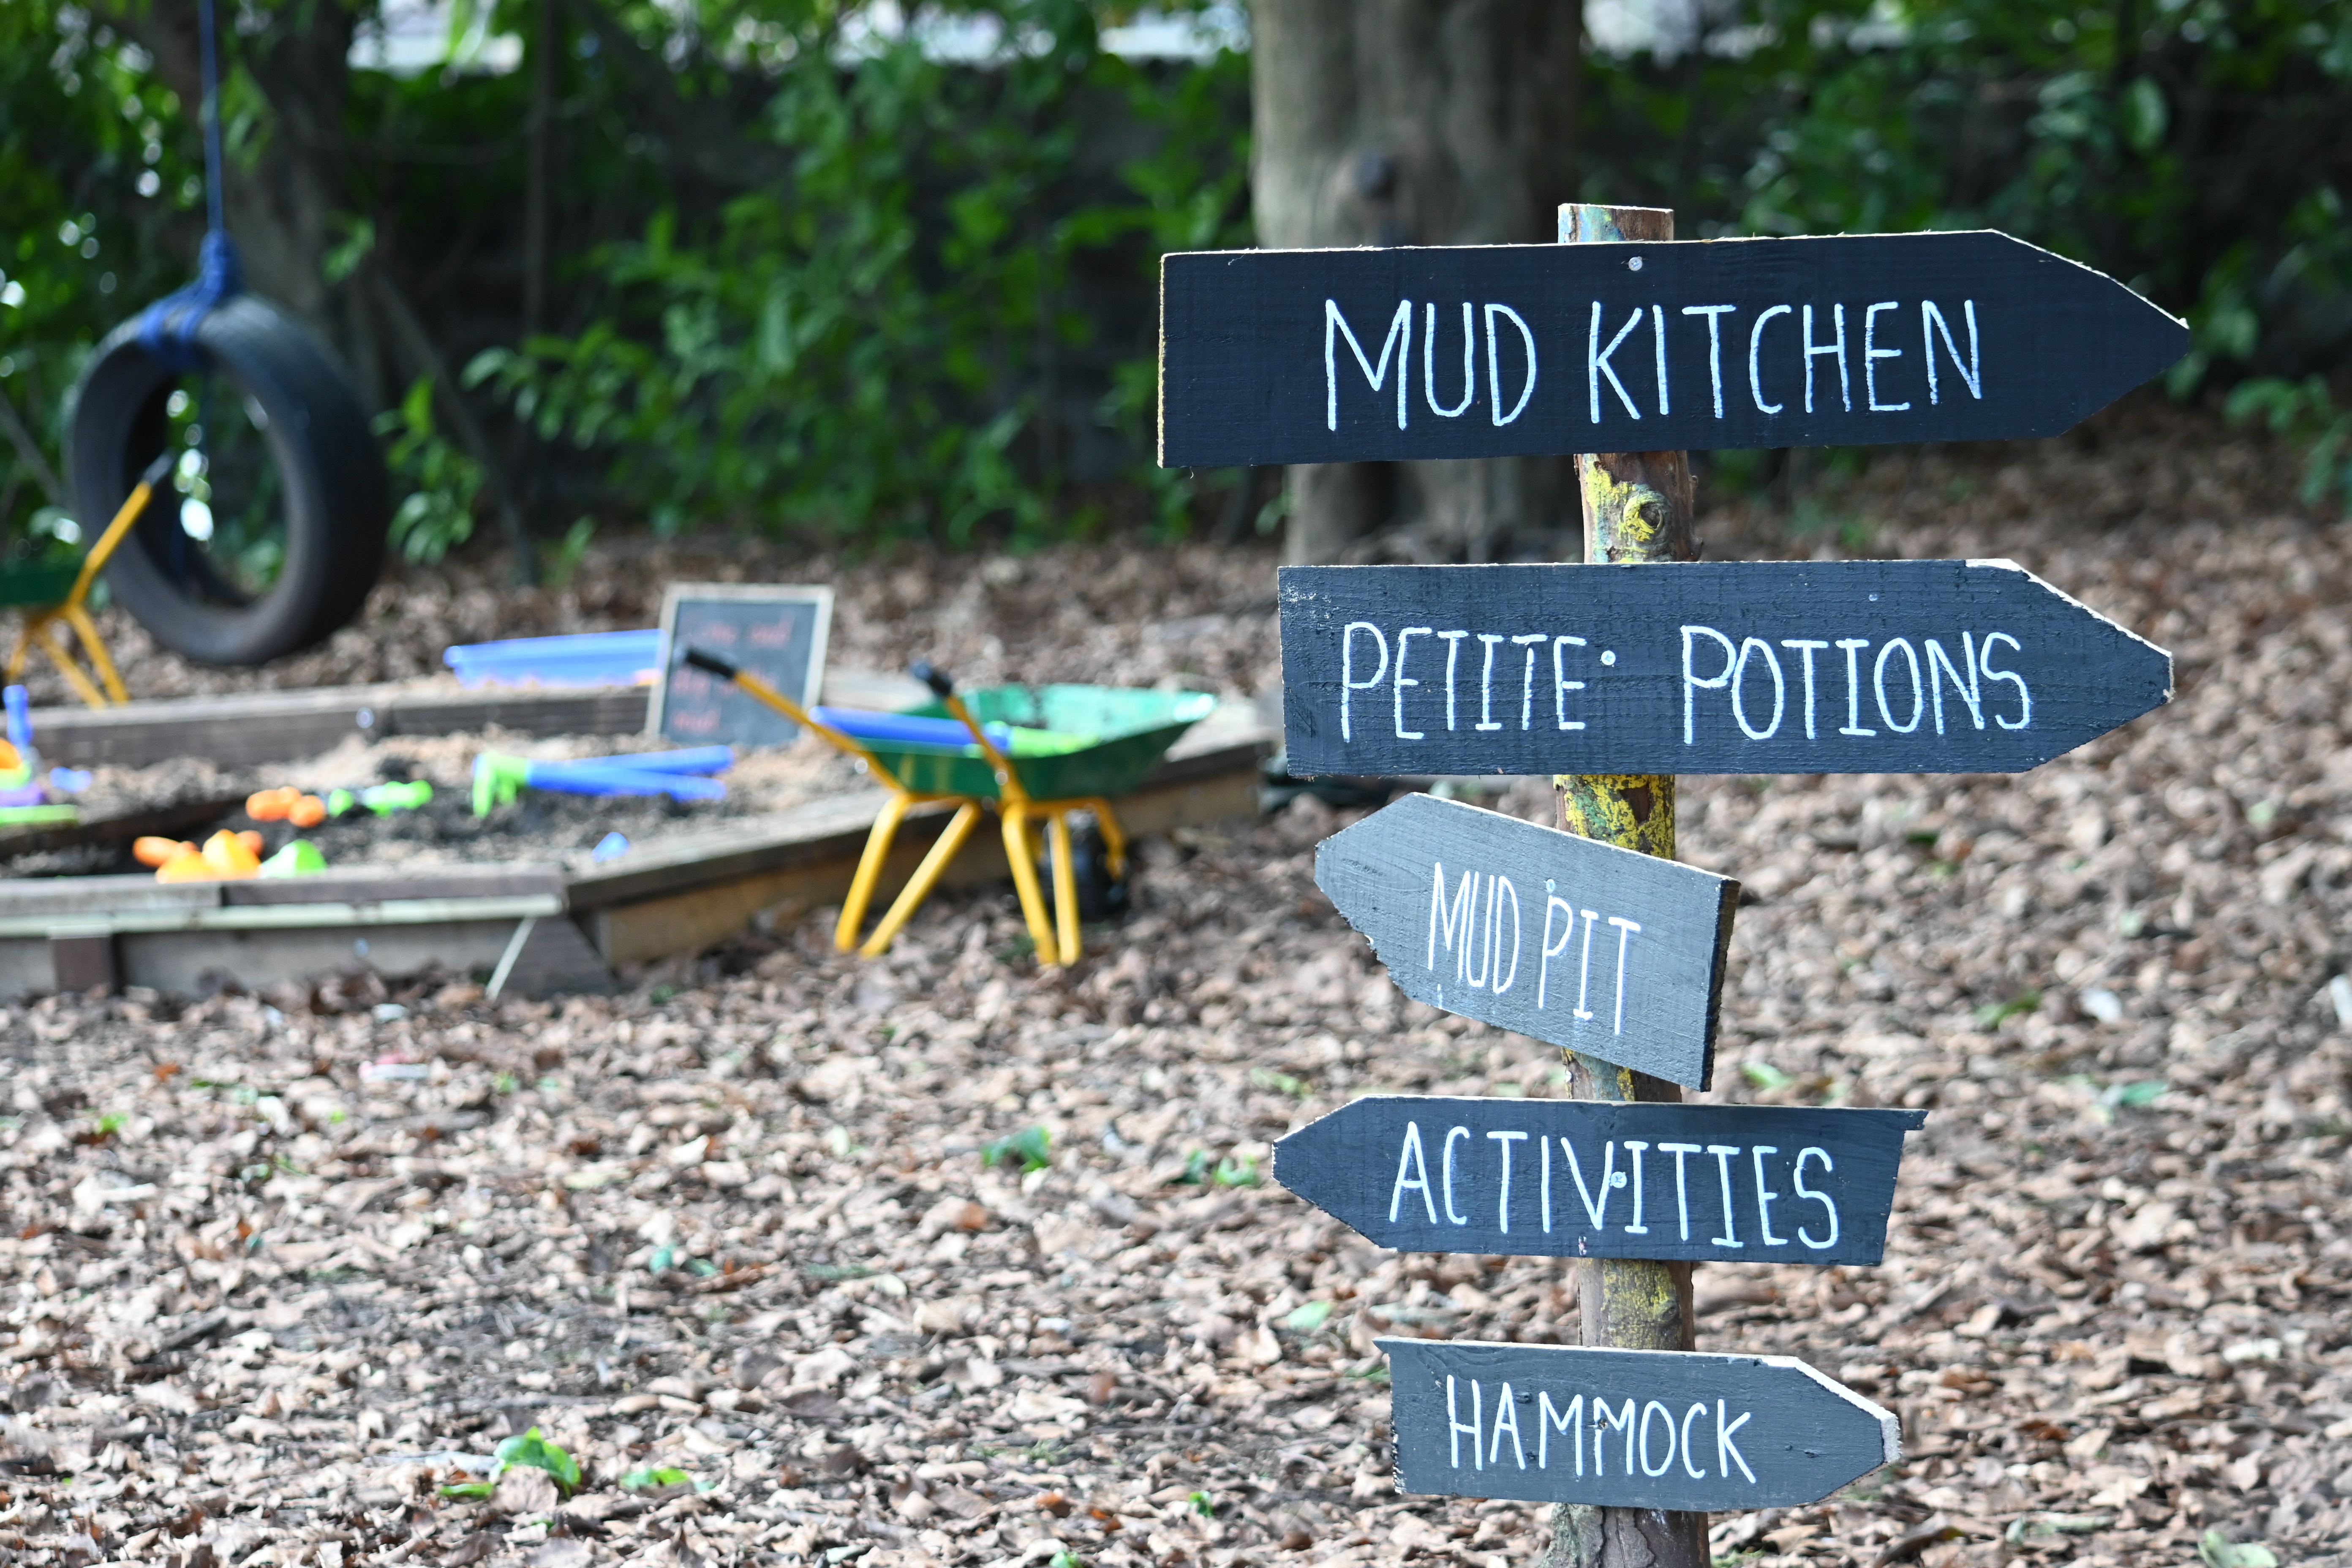 MUD KITCHEN
PETITE POTIONS
MUD PIT
ACTIVITIES
HAMMOCK